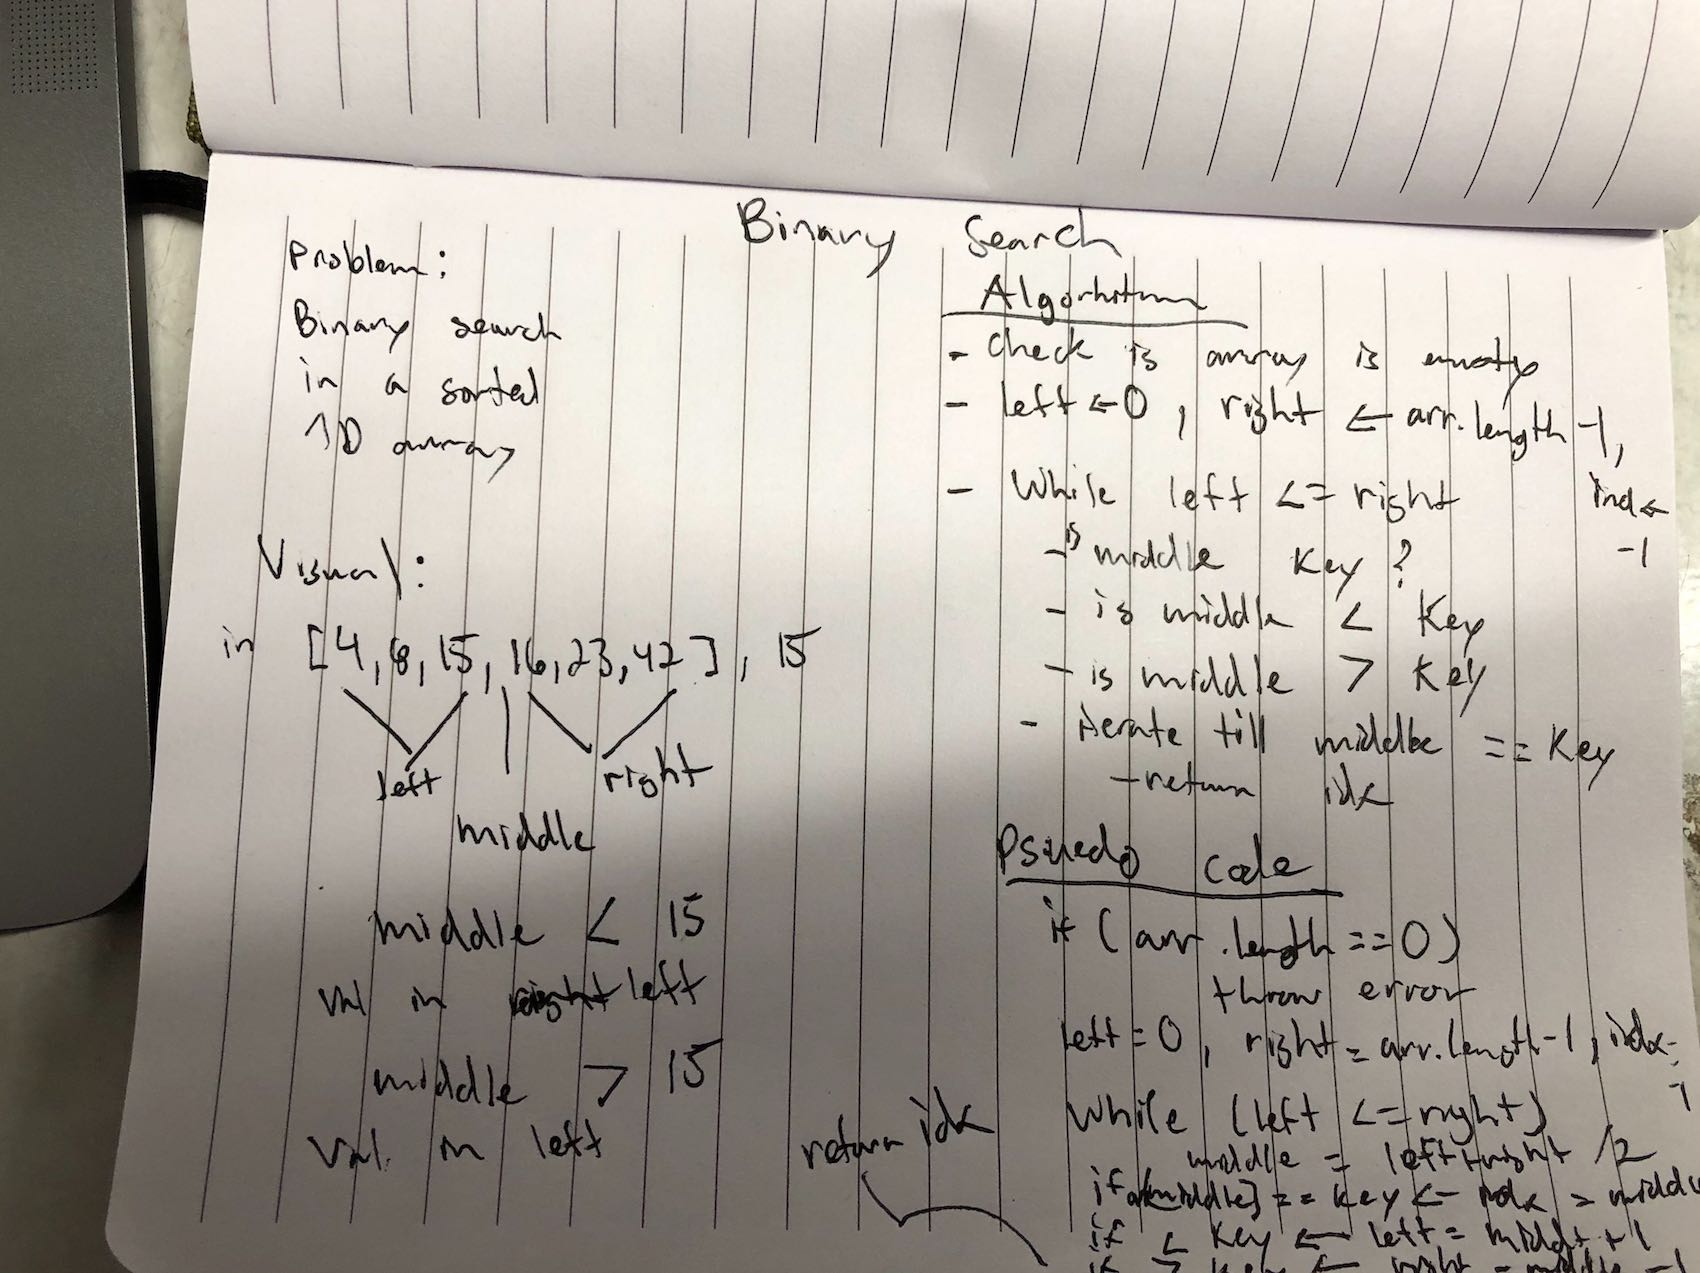 Binary Search
Problem:
Binary search
in a sorted
1D array
Visual:
in [4,8,15,16,23,42], 15
left right
middle
middle < 15
val in right left
middle > 15
val in left
Algorhitm
- Check is array is empty
- left ← 0, right ← arr.length -1,
ind ←
-1
- While left <= right
- is middle Key?
- is middle < Key
- is middle > Key
- iterate till middle == Key
- return idx
Psuedo code
if (arr.length == 0)
throw error
left = 0, right = arr.length-1, idx=
-1
While (left <= right)
middle = left+right /2
if a[middle] == key ← idx = middle
if < Key ← left = middle +1
if > Key ← right = middle -1
return idx